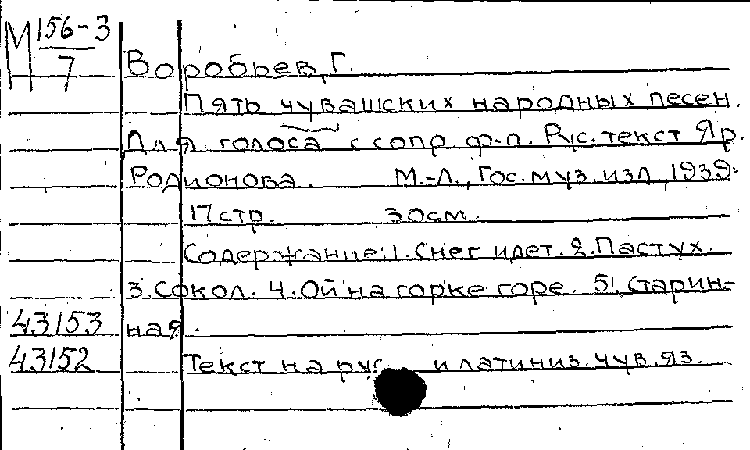 М 156-3
7
Воробьев, Г.
Пять чувашских народных песен.
Для голоса с сопр. ф-п. Рус. текст Яр.
Родионова. М.-Л., Гос. муз. изд., 1939.
17 стр. 30 см.
Содержание: 1. Снег идет. 2. Пастух.
3. Сокол. 4. Ой на горке горе. 5. Старин-
43153 ная.
43152 Текст на рус. и латиниз. чув. яз.